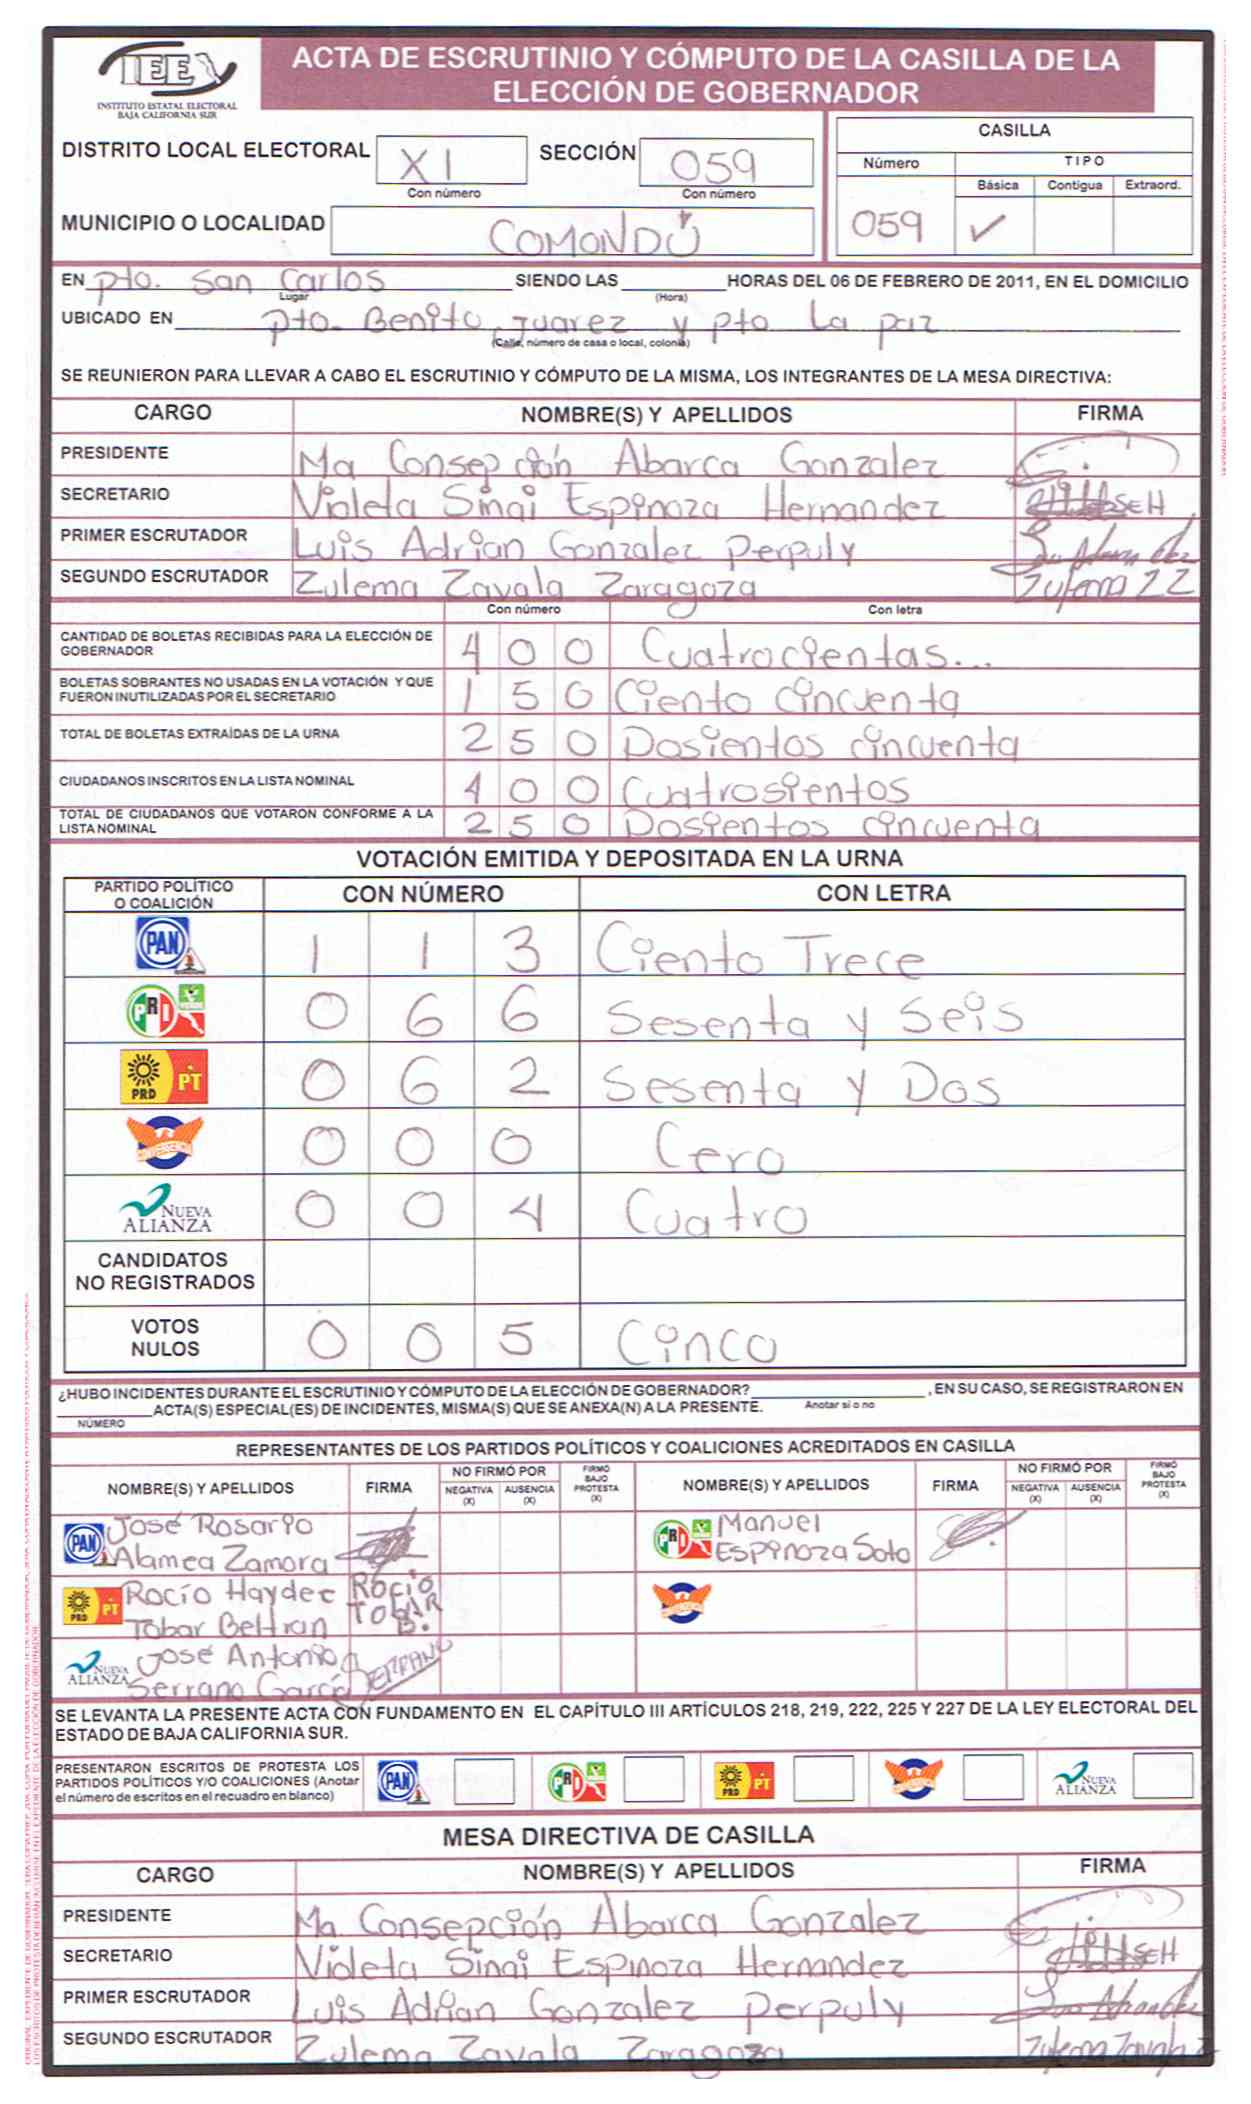 IEE
INSTITUTO ESTATAL ELECTORAL
BAJA CALIFORNIA SUR
ACTA DE ESCRUTINIO Y CÓMPUTO DE LA CASILLA DE LA
ELECCIÓN DE GOBERNADOR
DISTRITO LOCAL ELECTORAL XI SECCIÓN 059
Con número Con número
MUNICIPIO O LOCALIDAD COMONDÚ
CASILLA
Número TIPO
Básica Contigua Extraord.
059 ✓
EN pto. San Carlos SIENDO LAS ______ HORAS DEL 06 DE FEBRERO DE 2011, EN EL DOMICILIO
Lugar (Hora)
UBICADO EN pto. Benito juarez y pto La paz
(Calle, número de casa o local, colonia)
SE REUNIERON PARA LLEVAR A CABO EL ESCRUTINIO Y CÓMPUTO DE LA MISMA, LOS INTEGRANTES DE LA MESA DIRECTIVA:
CARGO NOMBRE(S) Y APELLIDOS FIRMA
PRESIDENTE Ma Consepción Abarca Gonzalez
SECRETARIO Violeta Sinai Espinoza Hernandez SEH
PRIMER ESCRUTADOR Luis Adrian Gonzalez Perpuly
SEGUNDO ESCRUTADOR Zulema Zavala Zaragoza Zulema ZZ
Con número Con letra
CANTIDAD DE BOLETAS RECIBIDAS PARA LA ELECCIÓN DE
GOBERNADOR 4 0 0 Cuatrocientas...
BOLETAS SOBRANTES NO USADAS EN LA VOTACIÓN Y QUE
FUERON INUTILIZADAS POR EL SECRETARIO 1 5 0 Ciento cincuenta
TOTAL DE BOLETAS EXTRAÍDAS DE LA URNA 2 5 0 Dosientos cincuenta
CIUDADANOS INSCRITOS EN LA LISTA NOMINAL 4 0 0 Cuatrosientos
TOTAL DE CIUDADANOS QUE VOTARON CONFORME A LA
LISTA NOMINAL 2 5 0 Dosientos cincuenta
VOTACIÓN EMITIDA Y DEPOSITADA EN LA URNA
PARTIDO POLÍTICO
O COALICIÓN CON NÚMERO CON LETRA
PAN 1 1 3 Ciento Trece
PRI VERDE 0 6 6 Sesenta y Seis
PRD PT 0 6 2 Sesenta y Dos
CONVERGENCIA 0 0 0 Cero
NUEVA ALIANZA 0 0 4 Cuatro
CANDIDATOS
NO REGISTRADOS
VOTOS
NULOS 0 0 5 Cinco
¿HUBO INCIDENTES DURANTE EL ESCRUTINIO Y CÓMPUTO DE LA ELECCIÓN DE GOBERNADOR? ______, EN SU CASO, SE REGISTRARON EN
______ ACTA(S) ESPECIAL(ES) DE INCIDENTES, MISMA(S) QUE SE ANEXA(N) A LA PRESENTE. Anotar sí o no
NÚMERO
REPRESENTANTES DE LOS PARTIDOS POLÍTICOS Y COALICIONES ACREDITADOS EN CASILLA
NOMBRE(S) Y APELLIDOS FIRMA NO FIRMÓ POR NEGATIVA (X) AUSENCIA (X) FIRMÓ BAJO PROTESTA (X) NOMBRE(S) Y APELLIDOS FIRMA NO FIRMÓ POR NEGATIVA (X) AUSENCIA (X) FIRMÓ BAJO PROTESTA (X)
PAN José Rosario PRI Manuel
Alamea Zamora Espinoza Soto
PRD PT Rocío Haydee ROCIO
Tobar Beltran TOBAR B.
NUEVA ALIANZA José Antonio
Serrano García SERRANO
SE LEVANTA LA PRESENTE ACTA CON FUNDAMENTO EN EL CAPÍTULO III ARTÍCULOS 218, 219, 222, 225 Y 227 DE LA LEY ELECTORAL DEL
ESTADO DE BAJA CALIFORNIA SUR.
PRESENTARON ESCRITOS DE PROTESTA LOS
PARTIDOS POLÍTICOS Y/O COALICIONES (Anotar
el número de escritos en el recuadro en blanco) PAN PRI PRD PT NUEVA ALIANZA
MESA DIRECTIVA DE CASILLA
CARGO NOMBRE(S) Y APELLIDOS FIRMA
PRESIDENTE Ma. Consepción Abarca Gonzalez
SECRETARIO Violeta Sinai Espinoza Hernandez SEH
PRIMER ESCRUTADOR Luis Adrian Gonzalez perpuly
SEGUNDO ESCRUTADOR Zulema Zavala Zaragoza Zulema Zavala Z